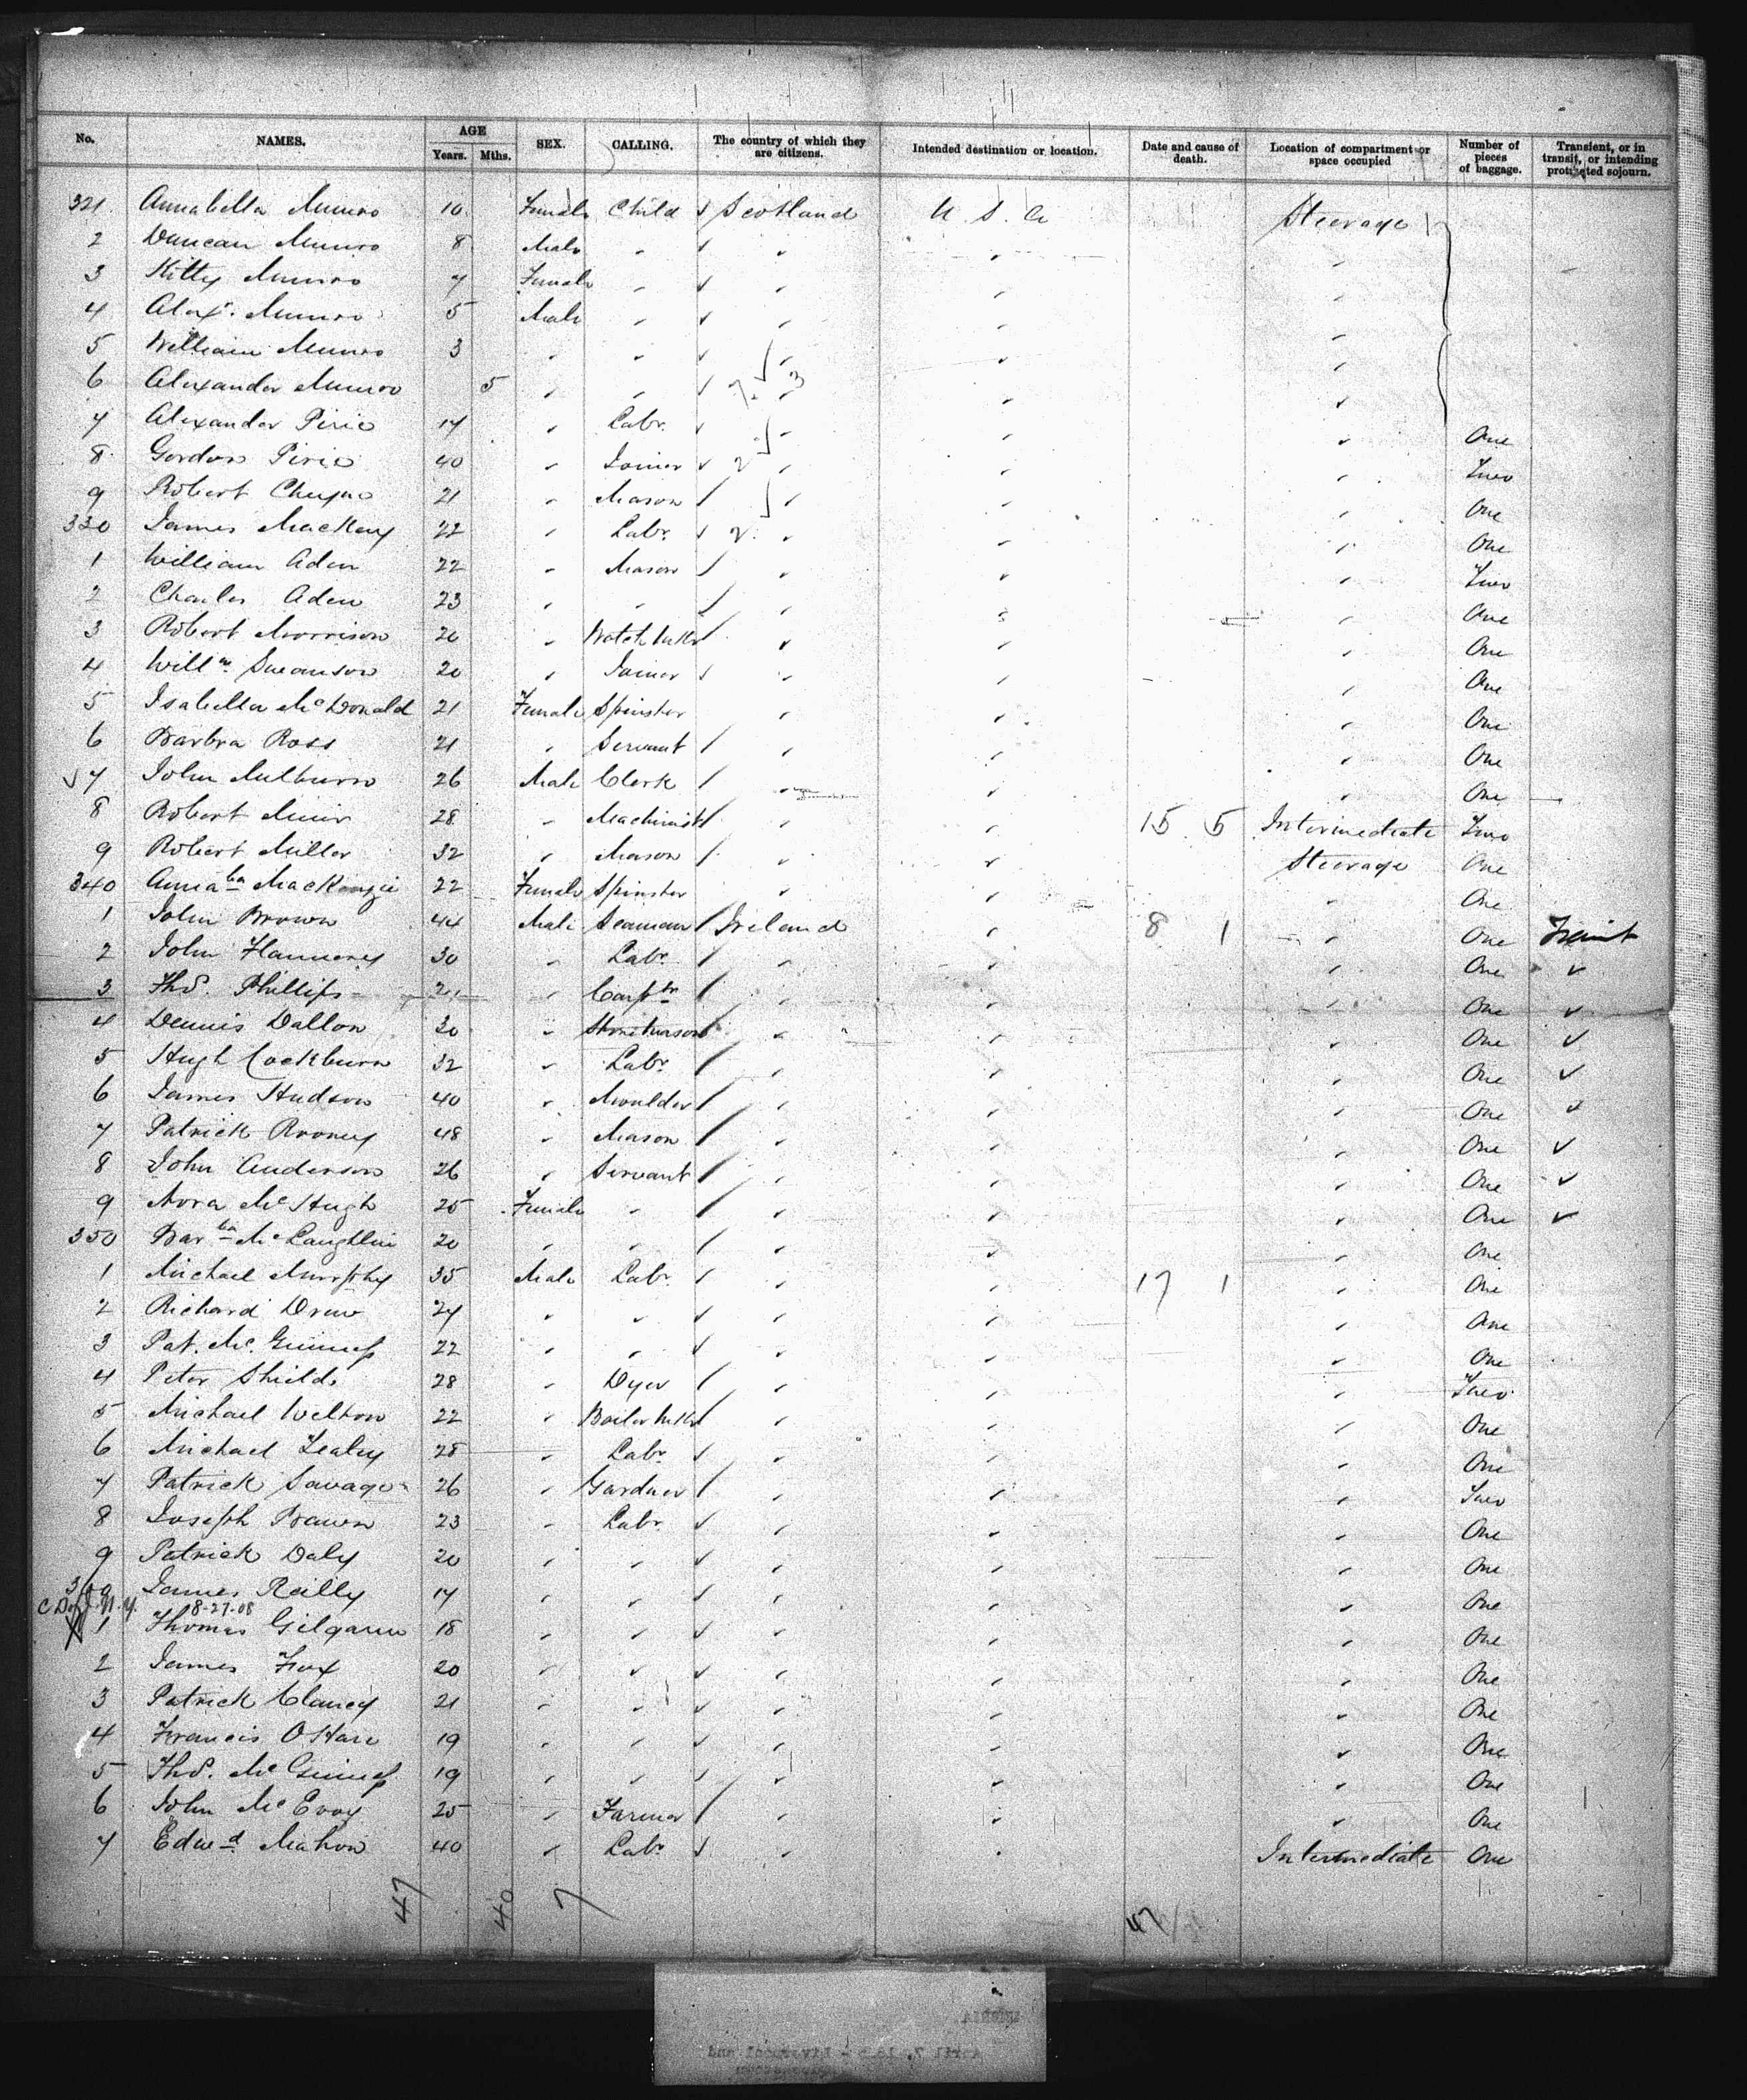 No. NAMES. AGE Years. Mths. SEX. CALLING. The country of which they are citizens. Intended destination or location. Date and cause of death. Location of compartment or space occupied Number of pieces of baggage. Transient, or in transit, or intending protracted sojourn.
321 Annabella Munro 10 Female Child Scotland U. S. A Steerage
2 Duncan Munro 8 Male
3 Kitty Munro 7 Female
4 Alexr. Munro 5 Male
5 William Munro 3
6 Alexander Munro 5 7 3
7 Alexander Pirie 17 Labr. One
8 Gordon Pirie 40 Joiner 2 Two
9 Robert Cheyne 21 Mason One
330 James MacKay 22 Labr. 2 One
1 William Aden 22 Mason Two
2 Charles Aden 23 One
3 Robert Morrison 20 Watch Mkr One
4 Willm. Swanson 20 Joiner One
5 Isabella McDonald 21 Female Spinster One
6 Barbra Ross 21 Servant One
7 John Milburn 26 Male Clerk One
8 Robert Muir 28 Machinist 15 5 Intermediate Two
9 Robert Miller 32 Mason Steerage One
340 Annabla MacKenzie 22 Female Spinster One
1 John Brown 44 Male Seaman Ireland 8 1 One
2 John Flannery 30 Labr. One
3 Thos. Phillips Carptr One
4 Dennis Dallon 30 Stone mason One
5 Hugh Cockburn 32 Labr. One
6 James Hudson 40 Moulder One
7 Patrick Rooney 48 Mason One
8 John Anderson 26 Servant One
9 Nora McHugh 25 Female One
350 Barbra McLaughlin 20 One
1 Michael Murphy 35 Male Labr. 17 1 One
2 Richard Drew 24 One
3 Pat. Mc. Guiness 22 One
4 Peter Shields 28 Dyer Two
5 Michael Welton 22 Boiler Mkr One
6 Michael Lealy 28 Labr. One
7 Patrick Savage 26 Gardner Two
8 Joseph Brawn 23 Labr. One
9 Patrick Daly 20 One
360 James Reilly 17 One
8-27-08
1 Thomas Gilgarin 18 One
2 James Fox 20 One
3 Patrick Clancy 21 One
4 Francis O'Hare 19 One
5 Thos. McGuiness 19 One
6 John McEvoy 25 Farmer One
7 Edwd. Mahon 40 Labr. Intermediate One
47 40 7 47